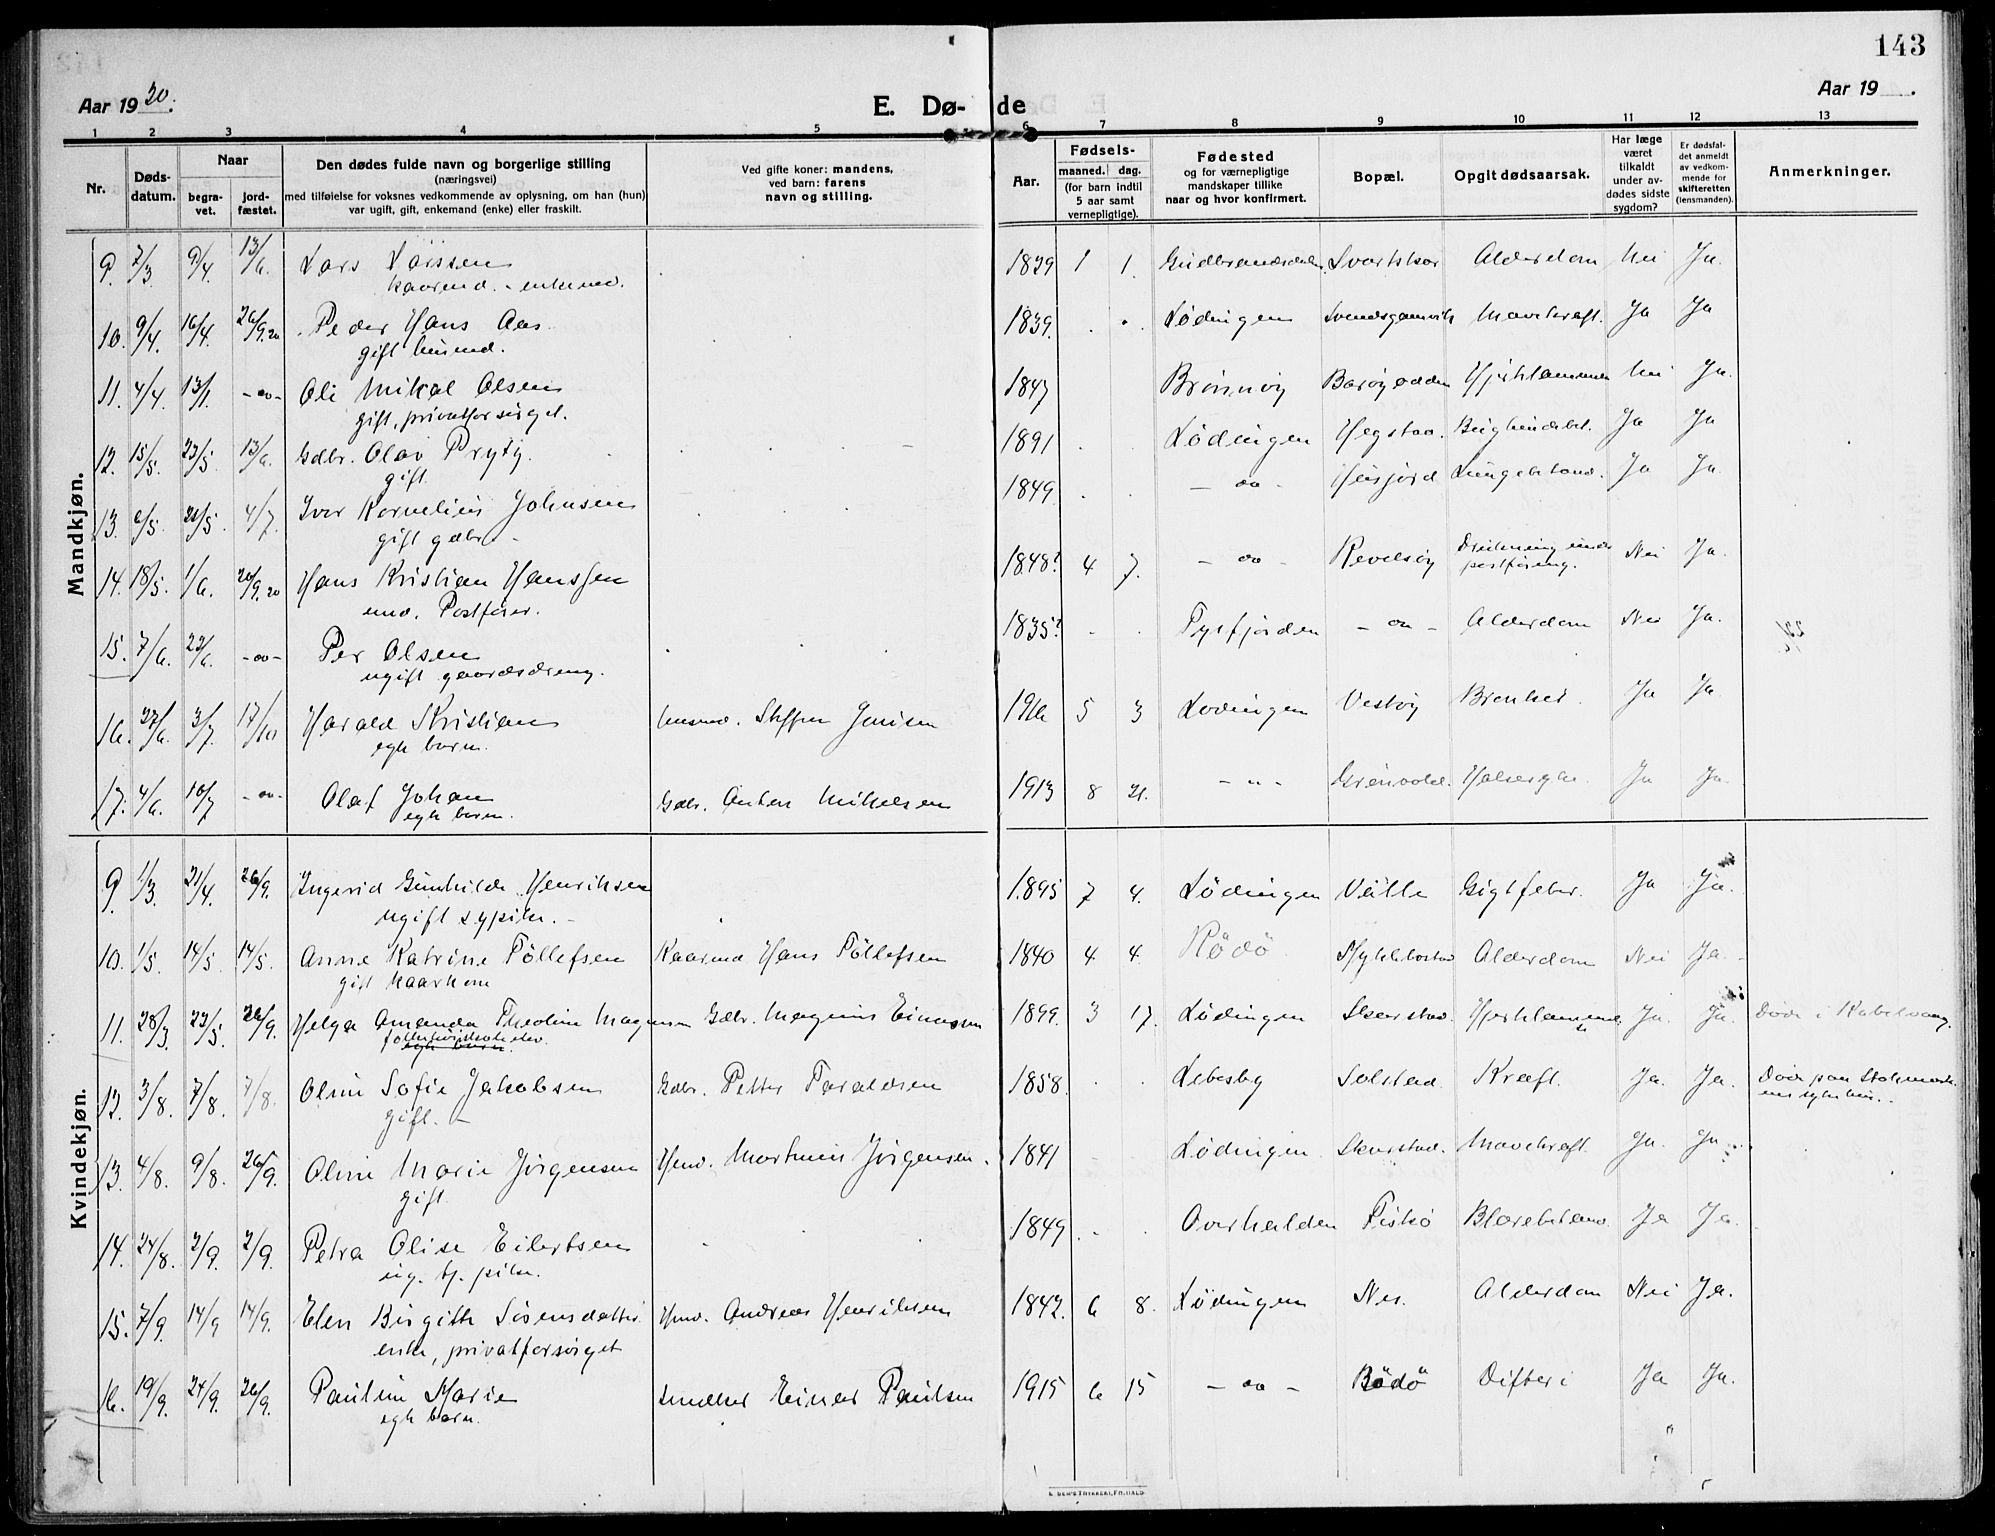 143
Aar 1920.
E. Dø-de
Aar 19 .
1 2 3 4 5 6 7 8 9 10 11 12 13
Nr.
Døds-datum.
Naar
begra-vet.
jord-fæstet.
Den dødes fulde navn og borgerlige stilling
(næringsvei)
med tilføielse for voksnes vedkommende av oplysning, om han (hun)
var ugift, gift, enkemand (enke) eller fraskilt.
Ved gifte koner: mandens,
ved barn: farens
navn og stilling.
Aar.
Fødsels-
maaned. dag.
(for barn indtil
5 aar samt
vernepligtige).
Fødested
og for værnepligtige
mandskaper tillike
naar og hvor konfirmert.
Bopæl.
Opgit dødsaarsak.
Har læge
været
tilkaldt
under av-
dødes sidste
sygdom?
Er dødsfal-
det anmeldt
av vedkom-
mende for
skifteretten
(lensmanden).
Anmerkninger.
Mandkjøn.
9. 7/3 9/4 13/6 Lars Larssen 1839 1 1. Gudbrandsdalen Alderdom Nei Ja.
kaarmd. - enkemd.
10. 9/4. 16/4. 26/9.20 Peder Hans Aas 1839. Lødingen Mavekræft. Ja Ja
gift husmd.
11. 4/4. 13/1. -oo- Oli Mikal Olsen 1847 Brønnøy Barøyodden Hjerklammer Nei Ja.
gift, privatforsørget.
12. 15/5. 23/5 13/6 Gdbr. Olav Prytz 1891 Lødingen Hegstad. Ja Ja
gift
13. 6/5 21/5. 4/7. Ivor Kornelius Johnsen 1849. - oo - Husjord Lungebetænd. Ja Ja.
gift gdbr. -
14. 18/5. 1/6. 26/9.20 Hans Kristian Hanssen 1848? 4 7. - oo - Revelsøy Drukning under Nei Ja.
postføring.
emd. Postfører.
15. 7/6. 22/6. -oo- Per Olsen 1835? Tysfjorden - oo - Alderdom Nei Ja.
ugift gaardsdreng.
16. 27/6. 3/7. 17/10 Harald Kristian husmd. Steffen Jensen 5 3 Lødingen Vestøy Ja Ja
egte barn.
17. 4/6. 10/7 -oo- Olaf Johan Gdbr. Anton Mikelsen 1913 8 21. - " - Ja Ja.
egte barn.
Kvindekjøn.
9. 1/3. 21/4. 26/9. Ingerid Gunhilde Henriksen 1895 7 4. Lødingen Gigtfeber. Ja Ja.
ugift sypike. -
10. 1/5. 14/5 14/5. Anne Katrine Töllefsen Kaarmd Hans Töllefsen 1840 4 4. Rödö Myklebostad Alderdom Nei Ja.
gift kaarkone
11. 28/3. 23/5. 26/9. Helga Amanda Theoline Magnussen Gdbr. Magnus Einarsen 1899. 3 17. Lødingen Skarstad. Hjerklammer Ja. Ja. Döde i Kabelvaag.
folkehöiskoleelev
egte barn.
12. 3/8. 7/8. 7/8. Oline Sofie Jakobsen Gdbr. Petter Taraldsen 1858. Lebesby Solstad. Kræft. Ja. Ja. Döde paa Stokmark
nes sykehus.
gift. -
13. 4/8. 9/8. 26/9. Oline Marie Jørgensen Hmd. Martinus Jørgensen. 1841 Lødingen Skarstad. Mavekræft. Ja. Ja
gift.
14. 24/8. 2/9. 2/9. Petra Olise Eilertsen 1849 Overhalden Fiskö Blærebetænd. Ja Ja.
ug. tj. pike.
15. 7/9. 14/9 14/9. Elen Birgitte Sörensdatter Hmd. Andreas Henriksen 1842. 6 8. Lødingen Nes. Alderdom Nei Ja.
enke, privatforsørget
16. 19/9. 24/9. 26/9. Pauline Marie snedker Einar Paulsen 1915 6 15 - oo - Bödö Difteri Ja Ja.
egte barn.